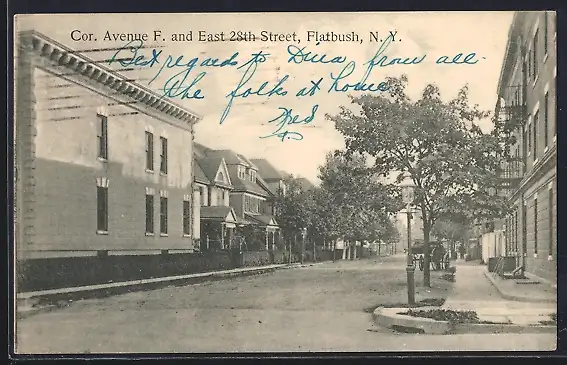 Cor. Avenue F. and East 28th Street, Flatbush, N. Y.
Best regards to Dina from all
the folks at home
Fred